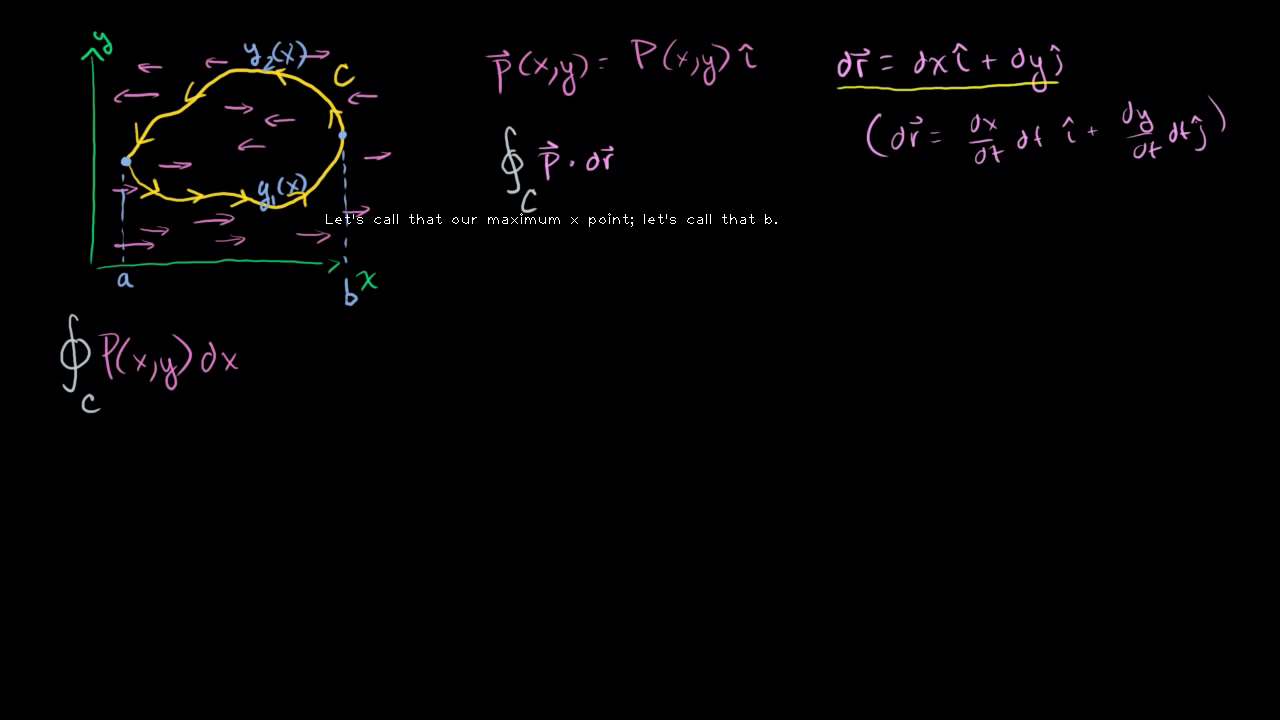 y
y₂(x)
C
y₁(x)
a
b
x
P⃗(x,y) = P(x,y) î
∮_C P⃗ · dr⃗
dr⃗ = dx î + dy ĵ
(dr⃗ = dx/dt dt î + dy/dt dt ĵ)
Let's call that our maximum x point; let's call that b.
∮_C P(x,y) dx